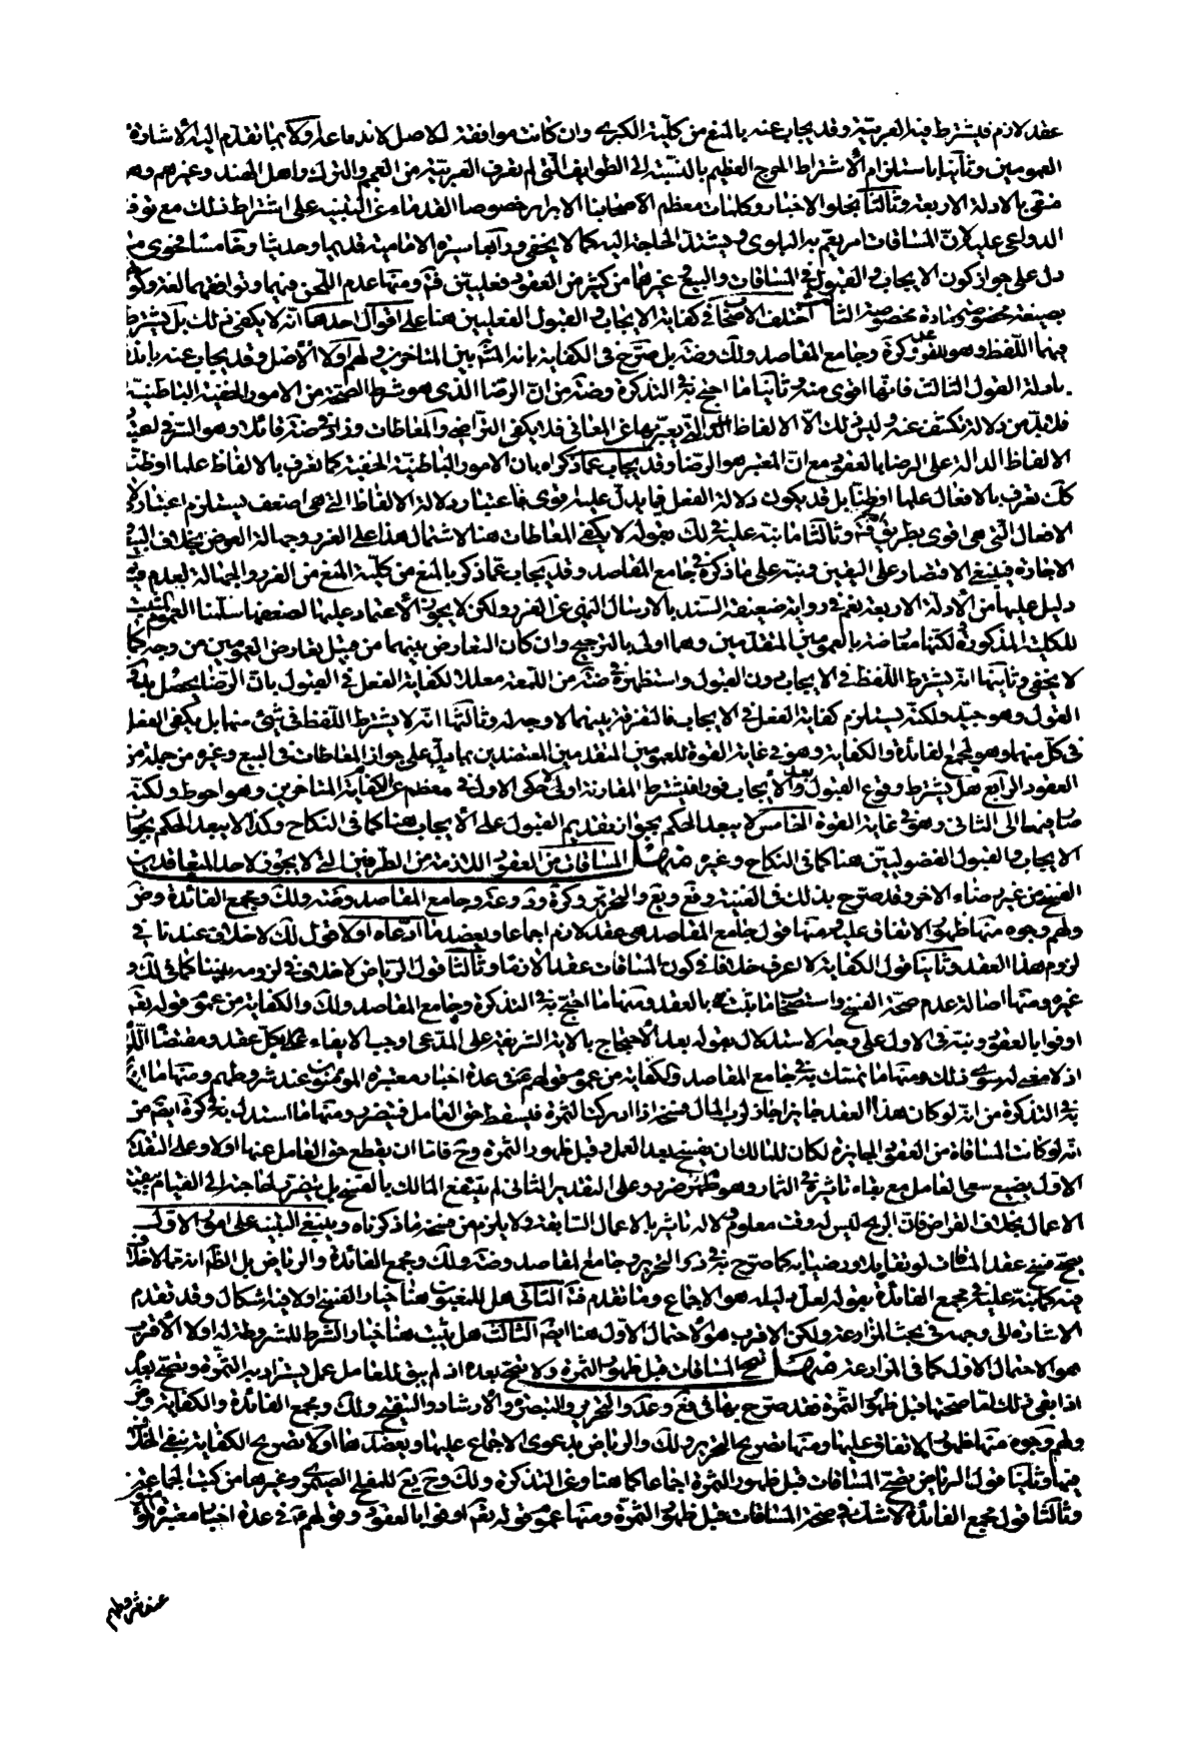 عقد لازم فيشترط فيه العربية وقد يجاب عنه بالمنع من كلية الكبرى وان كانت موافقة للاصل لاندفاعه اولا بما تقدم اليه الاشارة
العمومين وثانيا باستلزام الاشتراط الحرج العظيم بالنسبة الى الطوايف التى لم تعرف العربية من العجم والترك واهل الهند وغيرهم وهو
منفى بالادلة الاربعة وثالثا بخلو الاخبار وكلمات معظم الاصحاب الابرار خصوصا القدماء عن التنبيه على اشتراط ذلك مع توفر
الدواعى عليه لان المساقات امر يعم به البلوى ويشتد الحاجة اليه كما لا يخفى ورابعا سيرة الامامية قديما وحديثا وخامسا فحوى ما
دل على جواز كون الايجاب والقبول فى المساقات والبيع وغيرهما من كثير من العقود فعليين فتم ومنها عدم اللحن فيهما وتواضعهما لغة وكون
بصيغة مخصوصة ومادة مخصوصة الثا اختلف الاصحاب فى كفاية الايجاب والقبول الفعليين هنا على اقوال احدها انه لا يكفى ذلك بل يشترط
فيهما اللفظ وهو للقواعد وكرة وجامع المقاصد ولك وضه بل صرح فى الكفاية بانه المشهور بين المتاخرين ولهم اولا الاصل وقد يجاب عنه باندفاعه
بادلة القول الثالث فانها اقوى منه وثانيا ما احتج به فى التذكرة وضه من ان الرضا الذى هو شرط الصحة من الامور الخفية الباطنية
فلا بد من دلالة تكشف عنه وليس ذلك الا الالفاظ الدوال التى يعبر بها عن المعانى فلا يكفى التراضى والمعاطات وزاد فى ضه قائلا وهو السر فى تعيين
الالفاظ الدالة على الرضا بالعقود مع ان المعتبر هو الرضا وقد يجاب عما ذكراه بان الامور الباطنية الخفية كما تعرف بالالفاظ علما او ظنا
كك تعرف بالافعال علما او ظنا بل قد يكون دلالة الفعل فيما يدل عليه اقوى فاعتبار دلالة الالفاظ التى هى اضعف يستلزم اعتبار دلالة
الافعال التى هى اقوى بطريق فتم وثالثا ما نبه عليه فى لك بقوله لا يكفى المعاطات هنا لاشتمال هذا على الغرر وجهالة العوض بخلاف البيع
الاجارة فينبغى الاقتصار على اليقين ونبه على ما ذكره فى جامع المقاصد وقد يجاب عما ذكر بالمنع من كلية المنع من الغرر والجهالة لعدم
دليل عليها من الادلة الاربعة نعم فى رواية ضعيفة السند بالارسال النهى عن الغرر ولكن لا يجوز الاعتماد عليها لضعفها سلمنا العموم
للكلية المذكورة لكنها معارضة بالعمومين المتقدمين وهما اولى بالترجيح وان كان التعارض بينهما من قبيل تعارض العمومين من وجه كما
لا يخفى وثانيها انه يشترط اللفظ فى الايجاب دون القبول واستظهره فى ضه من اللمعة معللا لكفاية الفعل فى القبول بان الرضا يحصل بدون
القول وهو جيد ولكنه يستلزم كفاية الفعل فى الايجاب فالتفرقة بينهما لا وجه له وثالثها انه لا يشترط اللفظ فى شئ منهما بل يكفى الفعل
فى كل منهما وهو لمجمع الفائدة والكفاية وهو فى غاية القوة للعمومين المتقدمين المعتضدين بما دل على جواز المعاطات فى البيع وغيره من جملة من
العقود الرابع هل يشترط وقوع القبول بعد الايجاب فورا فيشترط المقارنة اولا حكى الاول فى الكفاية عن معظم المتاخرين وهو احوط ولكنه
صار فيها الى الثانى وهو فى غاية القوة الخامس لا يبعد الحكم بجواز تقديم القبول على الايجاب هنا كما فى النكاح وكذا لا يبعد الحكم بجواز
الايجاب والقبول الفضوليين هنا كما فى النكاح وغيره منهل المساقات من العقود اللازمة من الطرفين التى لا يجوز لاحد المتعاقدين
الفسخ من غير رضاء الاخر وقد صرح بذلك فى الغنية وفع ويع والتحرير وكرة وعد وجامع المقاصد وضه ولك ومجمع الفائدة وض
ولهم وجوه منها ظهور الاتفاق عليه ومنها قول جامع المقاصد هى عقد لازم اجماعا ويعضد ما ادعاه اولا قول لك لا خلاف عندنا فى
لزوم هذا العقد وثانيا قول الكفاية لا اعرف خلافا فى كون المساقات عقد لازما وثالثا قول الرياض لا خلاف فى لزومه بيننا كما فى لك و
غيره ومنها اصالة عدم صحة الفسخ واستصحاب ما ثبت بالعقد ومنها ما احتج به فى التذكرة وجامع المقاصد ولك والكفاية من عموم قوله تعالى
اوفوا بالعقود ونبه فى الاول على وجه الاستدلال بقوله بعد الاحتجاج بالاية الشريفة على المدعى اوجب الايفاء بكل عقد ومقتضاه اللزوم
اذ لا معنى له سوى ذلك ومنها ما تمسك به فى جامع المقاصد والكفاية من عموم قولهم ع فى عدة اخبار معتبرة المؤمنون عند شروطهم ومنها ما
به فى التذكرة من انه لو كان هذا العقد جايزا جاز لرب المال فسخه اذا ادركت الثمرة فيسقط حق العامل فيتضرر ومنها ما استدل به فى كرة ايضا من
انه لو كانت المساقاة من العقود الجايزة لكان للمالك ان يفسخ بعد العمل وقبل ظهور الثمرة وح فاما ان يقطع حق العامل عنها اولا وعلى التقدير
الاول يضيع سعى العامل مع بقاء تاثيره فى الثمار وهو ضرر وعلى التقدير الثانى لم ينتفع المالك بالفسخ بل يتضرر لحاجته الى القيام ببقية
الاعمال بخلاف القراض فان الربح ليس له وقت معلوم ولا له تاثير بالاعمال السابقة ولا يلزم من فسخه ما ذكرناه وينبغى التنبيه على امور الاول
يصح فسخ عقد المساقات لو تقايلا ورضيا به كما صرح به فى كرة والتحرير وجامع المقاصد وضه ولك ومجمع الفائدة والرياض بل الظاهر انه مما لا خلاف
فيه كما نبه عليه فى مجمع الفائدة بقوله لعل دليله هو الاجماع وما تقدم فتم الثانى هل للمغبون هنا خيار الفسخ اولا فيه اشكال وقد تقدم
الاشارة الى وجهه فى بحث المزارعة ولكن الاقرب هو الاحتمال الاول هنا ايضا الثالث هل يثبت هنا خيار الشرط للمشروط له اولا الاقرب
هو الاحتمال الاول كما فى المزارعة منهل تصح المساقات قبل ظهور الثمرة ولا تصح بعده اذ لم يبق للعامل عمل يستزاد به الثمرة وتصح بعد
اذا بقى ذلك اما صحتها قبل ظهور الثمرة فقد صرح بها فى فع وعد والتحرير والتبصرة والارشاد والتنقيح ولك ومجمع الفائدة والكفاية وض
ولهم وجوه منها ظهور الاتفاق عليها ومنها تصريح التحرير ولك والرياض بدعوى الاجماع عليها ويعضد هذا اولا تصريح الكفاية بنفى الخلاف
فيها وثانيا قول الرياض تصح المساقات قبل ظهور الثمرة اجماعا كما هنا وفى التذكرة ولك وح يع للمفلح الصيمرى وغيرها من كتب الجماعة
وثالثا قول مجمع الفائدة لا شك فى صحة المساقات قبل ظهور الثمرة ومنها عموم قوله تعالى اوفوا بالعقود وقولهم ع فى عدة اخبار معتبرة المؤمنون
عند شروطهم